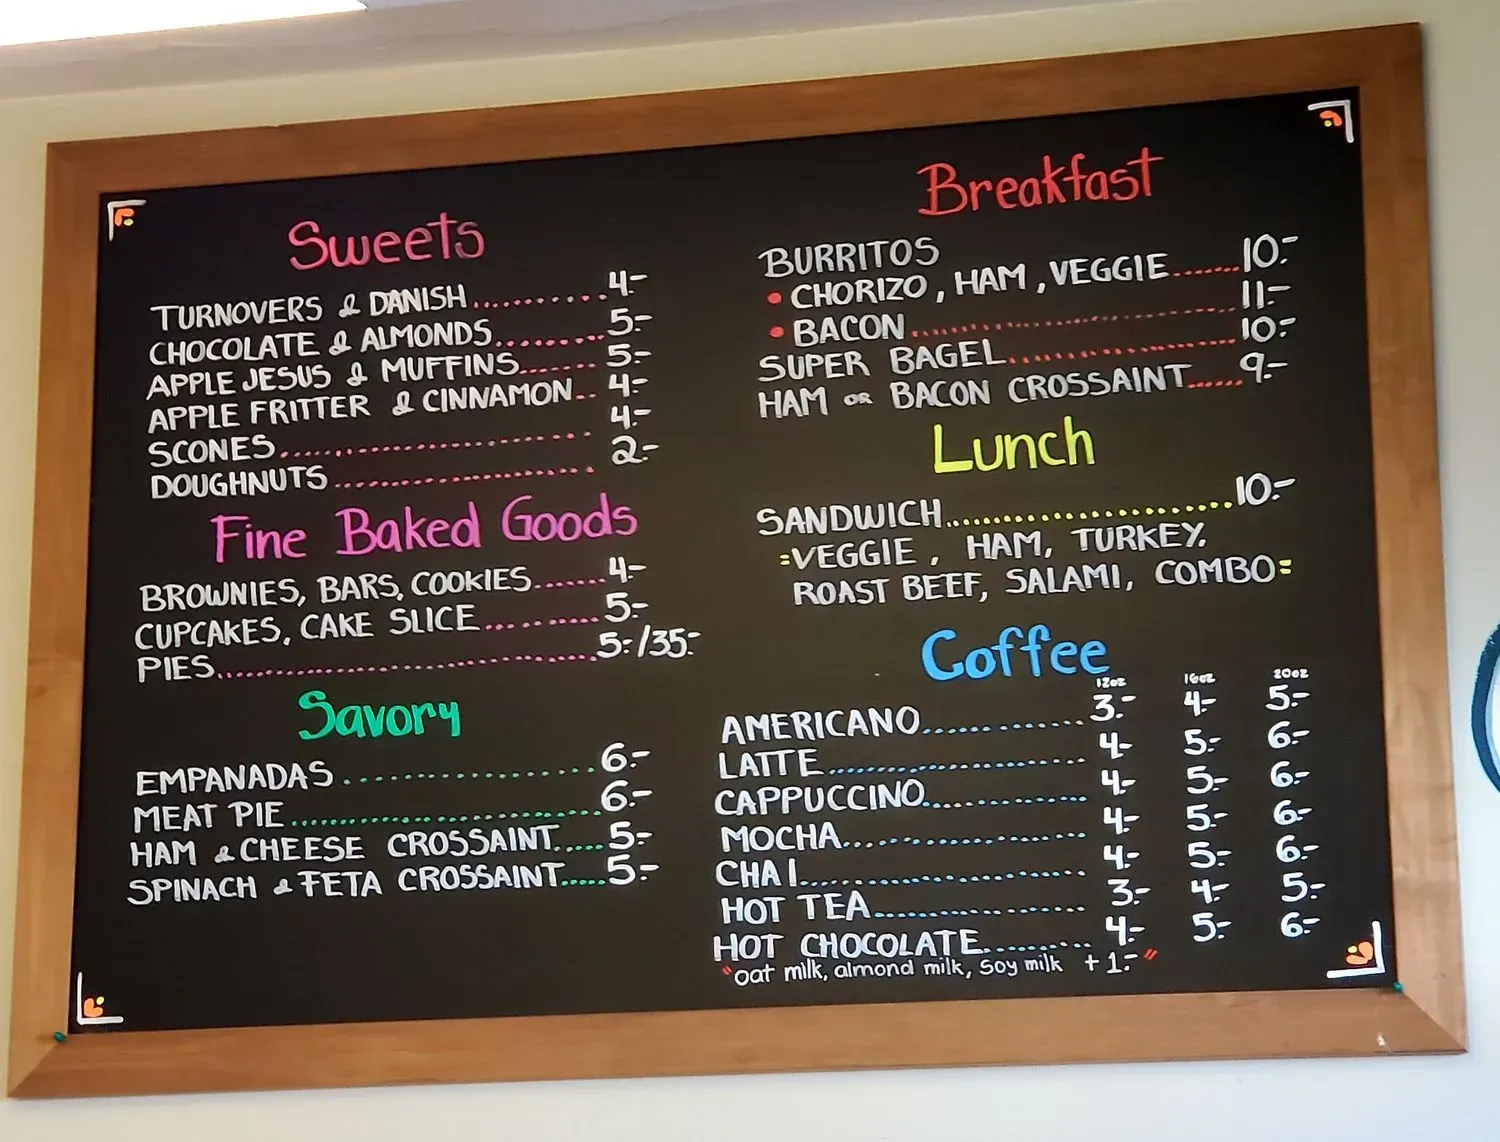 Sweets
TURNOVERS & DANISH 4-
CHOCOLATE & ALMONDS 5-
APPLE JESUS & MUFFINS 5-
APPLE FRITTER & CINNAMON 4-
SCONES 4-
DOUGHNUTS 2-
Fine Baked Goods
BROWNIES, BARS, COOKIES 4-
CUPCAKES, CAKE SLICE 5-
PIES 5-/35-
Savory
EMPANADAS 6-
MEAT PIE 6-
HAM & CHEESE CROSSAINT 5-
SPINACH & FETA CROSSAINT 5-
Breakfast
BURRITOS
• CHORIZO, HAM, VEGGIE 10-
• BACON 11-
SUPER BAGEL 10-
HAM OR BACON CROSSAINT 9-
Lunch
SANDWICH 10-
=VEGGIE, HAM, TURKEY,
ROAST BEEF, SALAMI, COMBO=
Coffee
12oz 16oz 20oz
AMERICANO 3- 4- 5-
LATTE 4- 5- 6-
CAPPUCCINO 4- 5- 6-
MOCHA 4- 5- 6-
CHAI 4- 5- 6-
HOT TEA 3- 4- 5-
HOT CHOCOLATE 4- 5- 6-
"oat milk, almond milk, soy milk +1-"